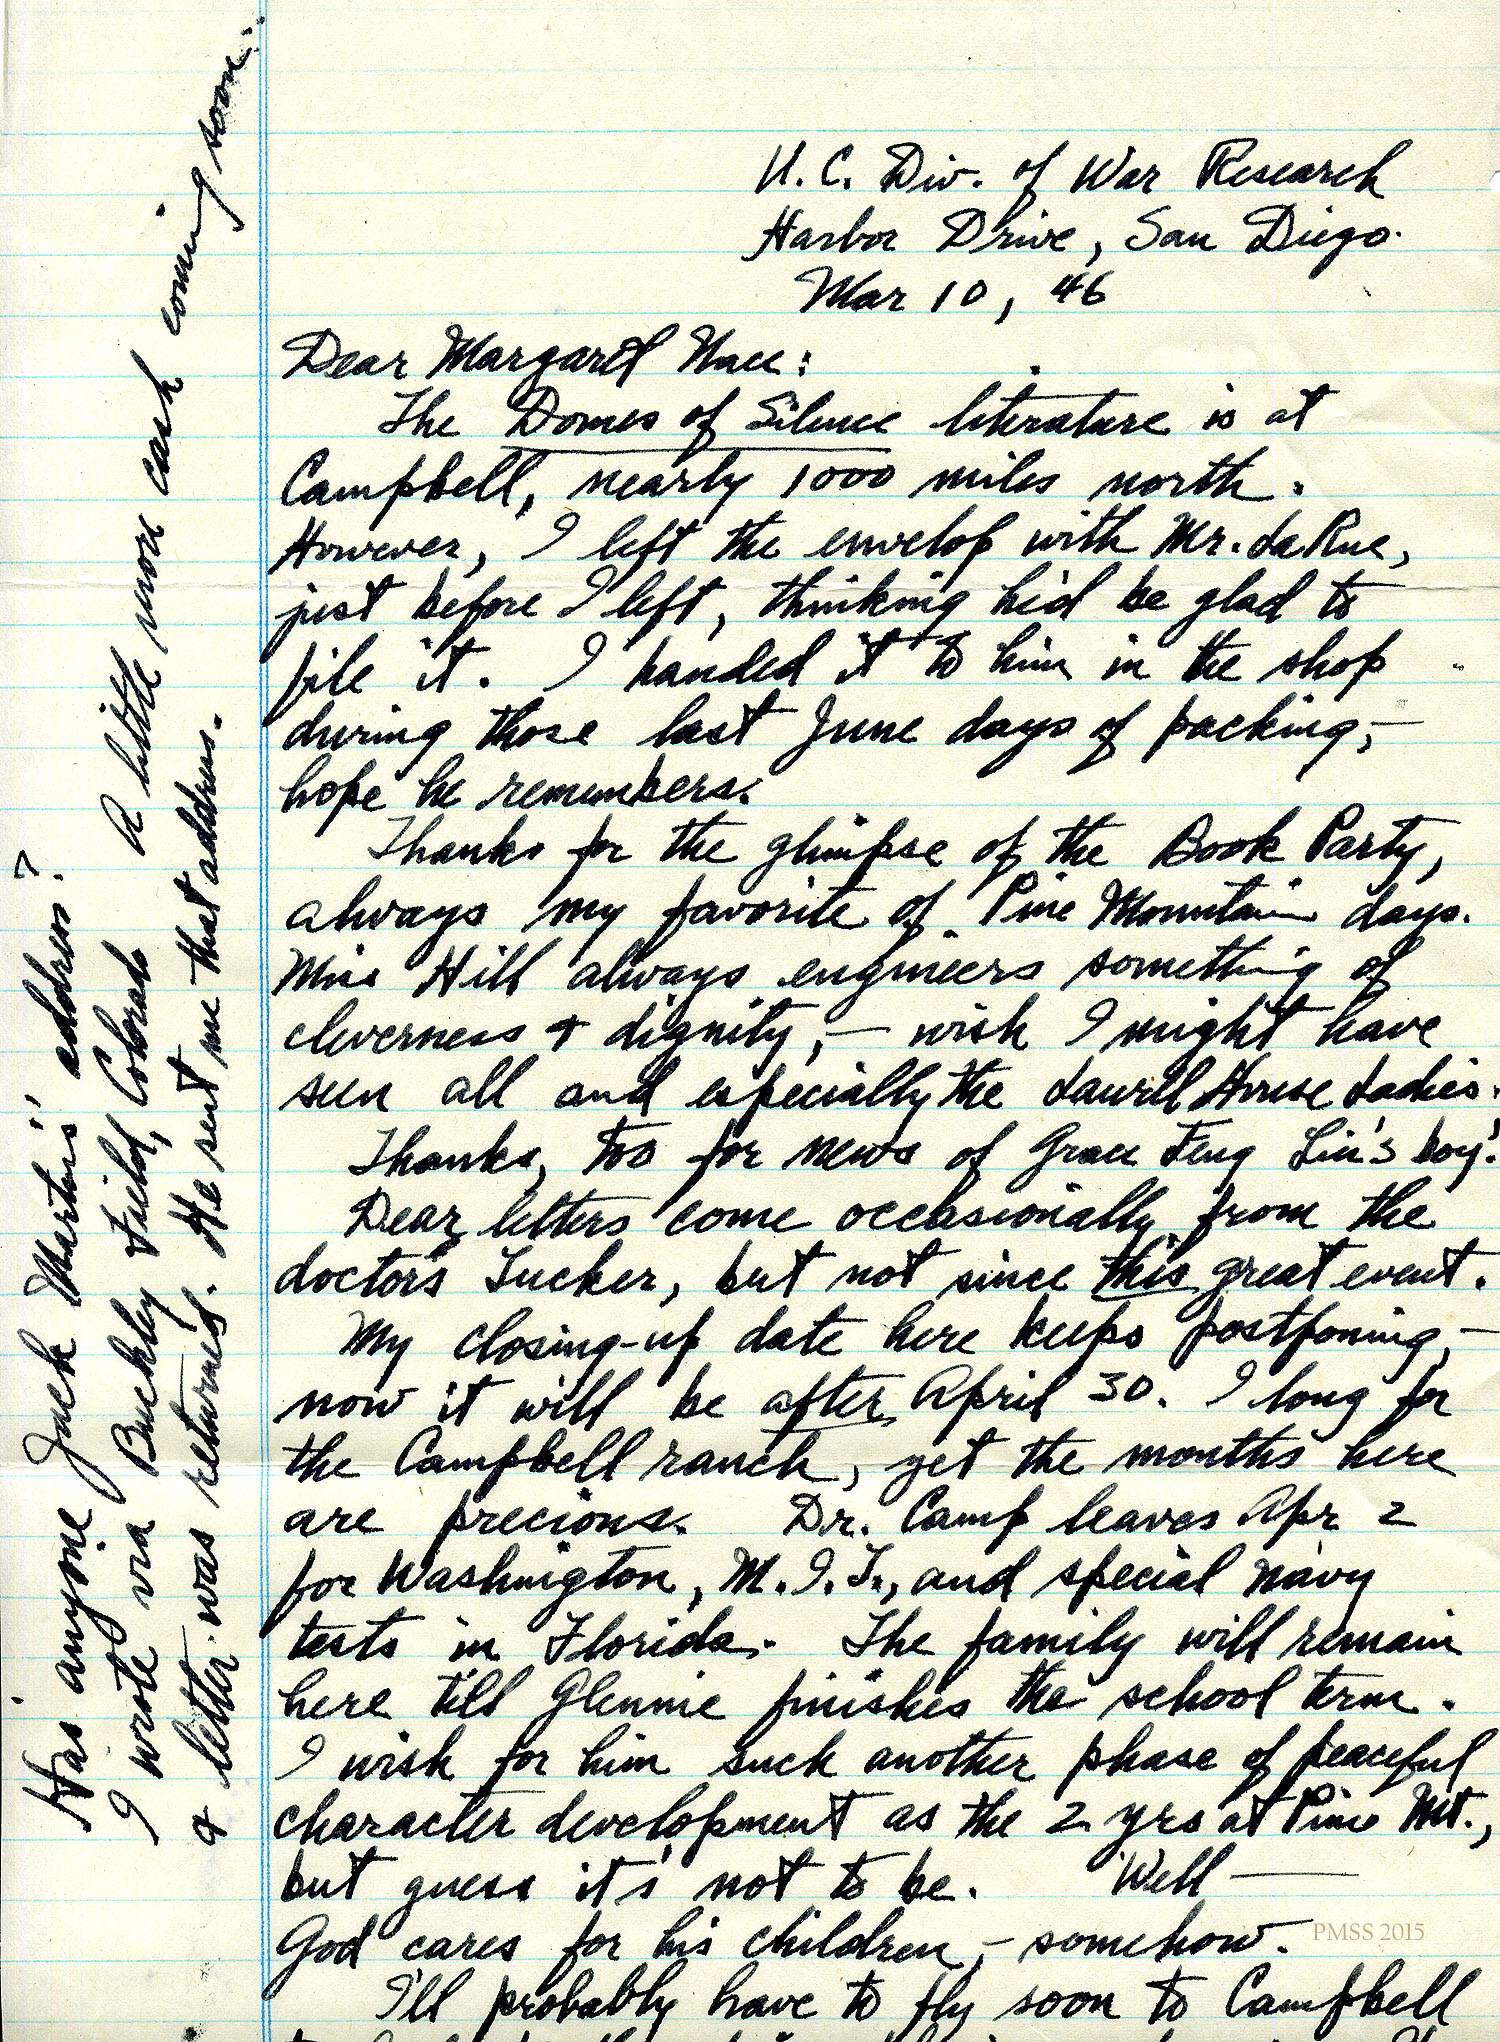 U. C. Div. of War Research
Harbor Drive, San Diego.
Mar 10, 46
Dear Margaret Nace:
The Domes of Silence literature is at
Campbell, nearly 1000 miles north.
However, I left the envelop with Mr. LaRue,
just before I left, thinking he'd be glad to
file it. I handed it to him in the shop
during those last June days of packing,—
hope he remembers.
Thanks for the glimpse of the Book Party,
always my favorite of Pine Mountain days.
Miss Hill always engineers something of
cleverness & dignity,— wish I might have
seen all and especially the Laurel House Ladies.
Thanks, too for news of Grace Feng Liu's boy!
Dear letters come occasionally from the
doctors Tucker, but not since this great event.
My closing-up date here keeps postponing,—
now it will be after April 30. I long for
the Campbell ranch, yet the months here
are precious. Dr. Camp leaves Apr 2
for Washington, M.I.T., and special navy
tests in Florida. The family will remain
here till Glennie finishes the school term.
I wish for him such another phase of peaceful
character development as the 2 yrs at Pine Mt.,
but guess it's not to be. Well —
God cares for his children,— somehow.
I'll probably have to fly soon to Campbell
Has anyone Jack Martin's address?
I wrote via Buckley Field, Colorado
& letter was returned. He sent me that address.
A little more cash coming soon.
PMSS 2015